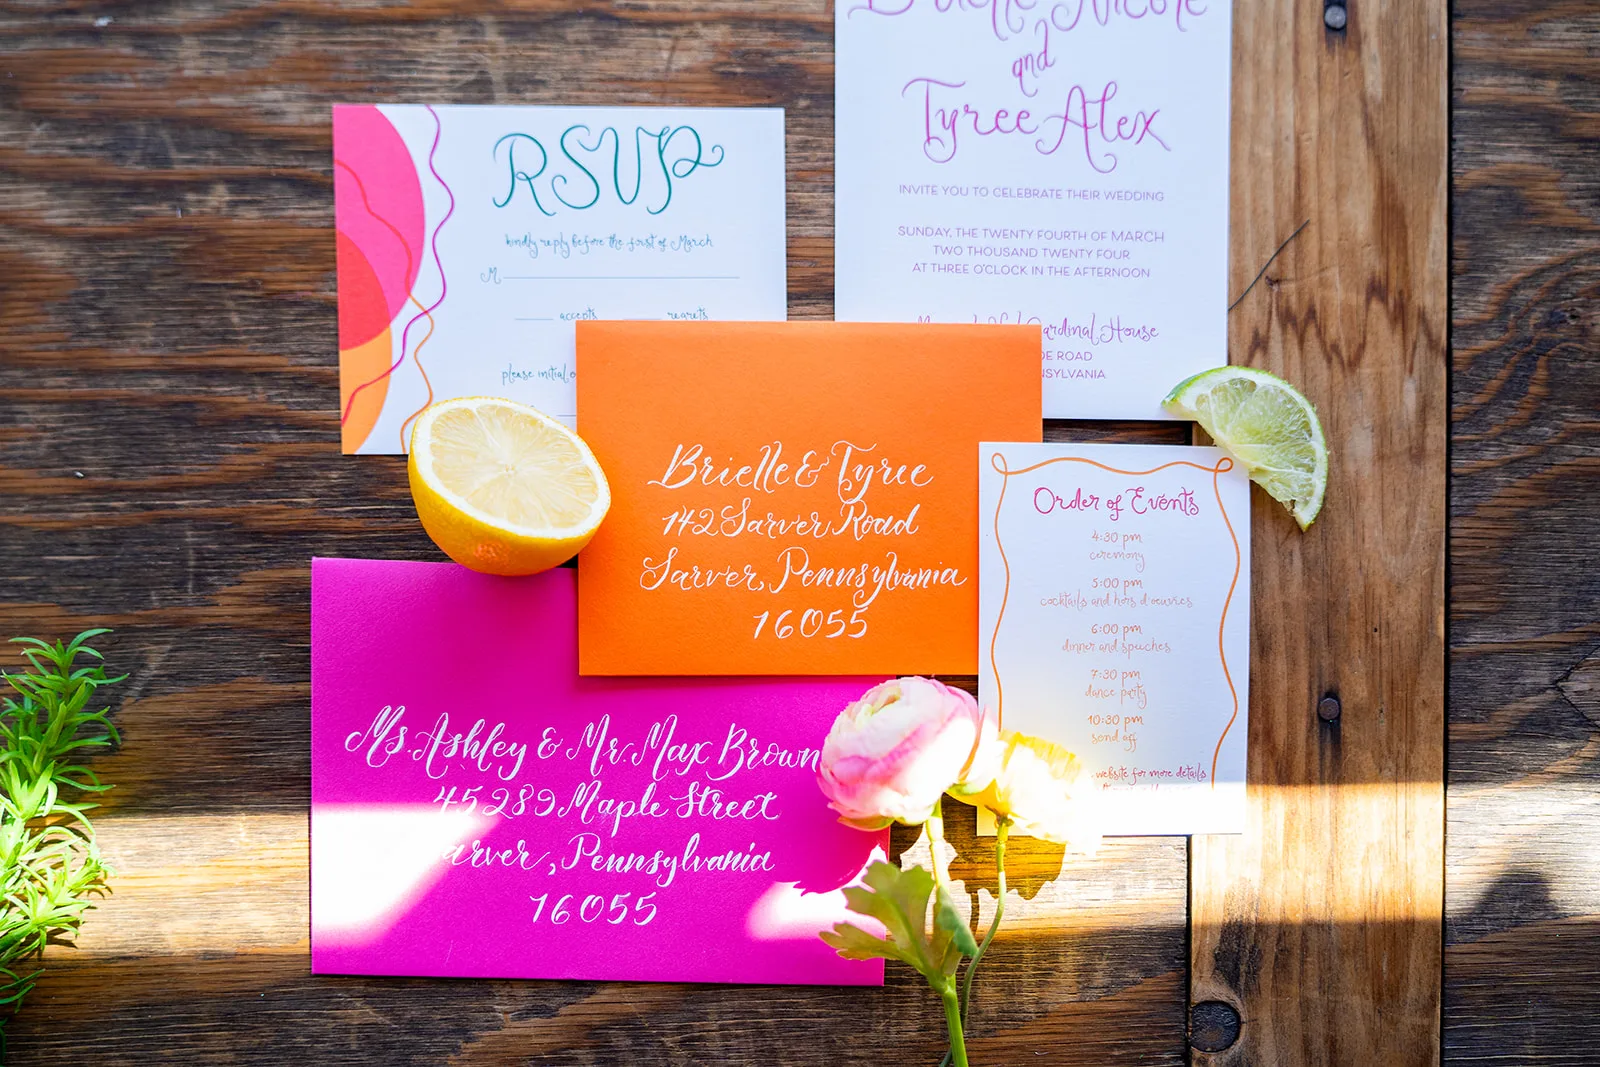 RSVP
kindly reply before the first of March
M
accepts regrets
please initial
Brielle Nicole
and
Tyree Alex
INVITE YOU TO CELEBRATE THEIR WEDDING
SUNDAY, THE TWENTY FOURTH OF MARCH
TWO THOUSAND TWENTY FOUR
AT THREE O'CLOCK IN THE AFTERNOON
Cardinal House
ROAD
Brielle & Tyree
142 Sarver Road
Sarver, Pennsylvania
16055
Order of Events
4:30 pm
ceremony
5:00 pm
cocktails and hors d'oeuvres
6:00 pm
dinner and speeches
7:30 pm
dance party
10:30 pm
send off
website for more details
Ms. Ashley & Mr. Max Brown
45289 Maple Street
arver, Pennsylvania
16055